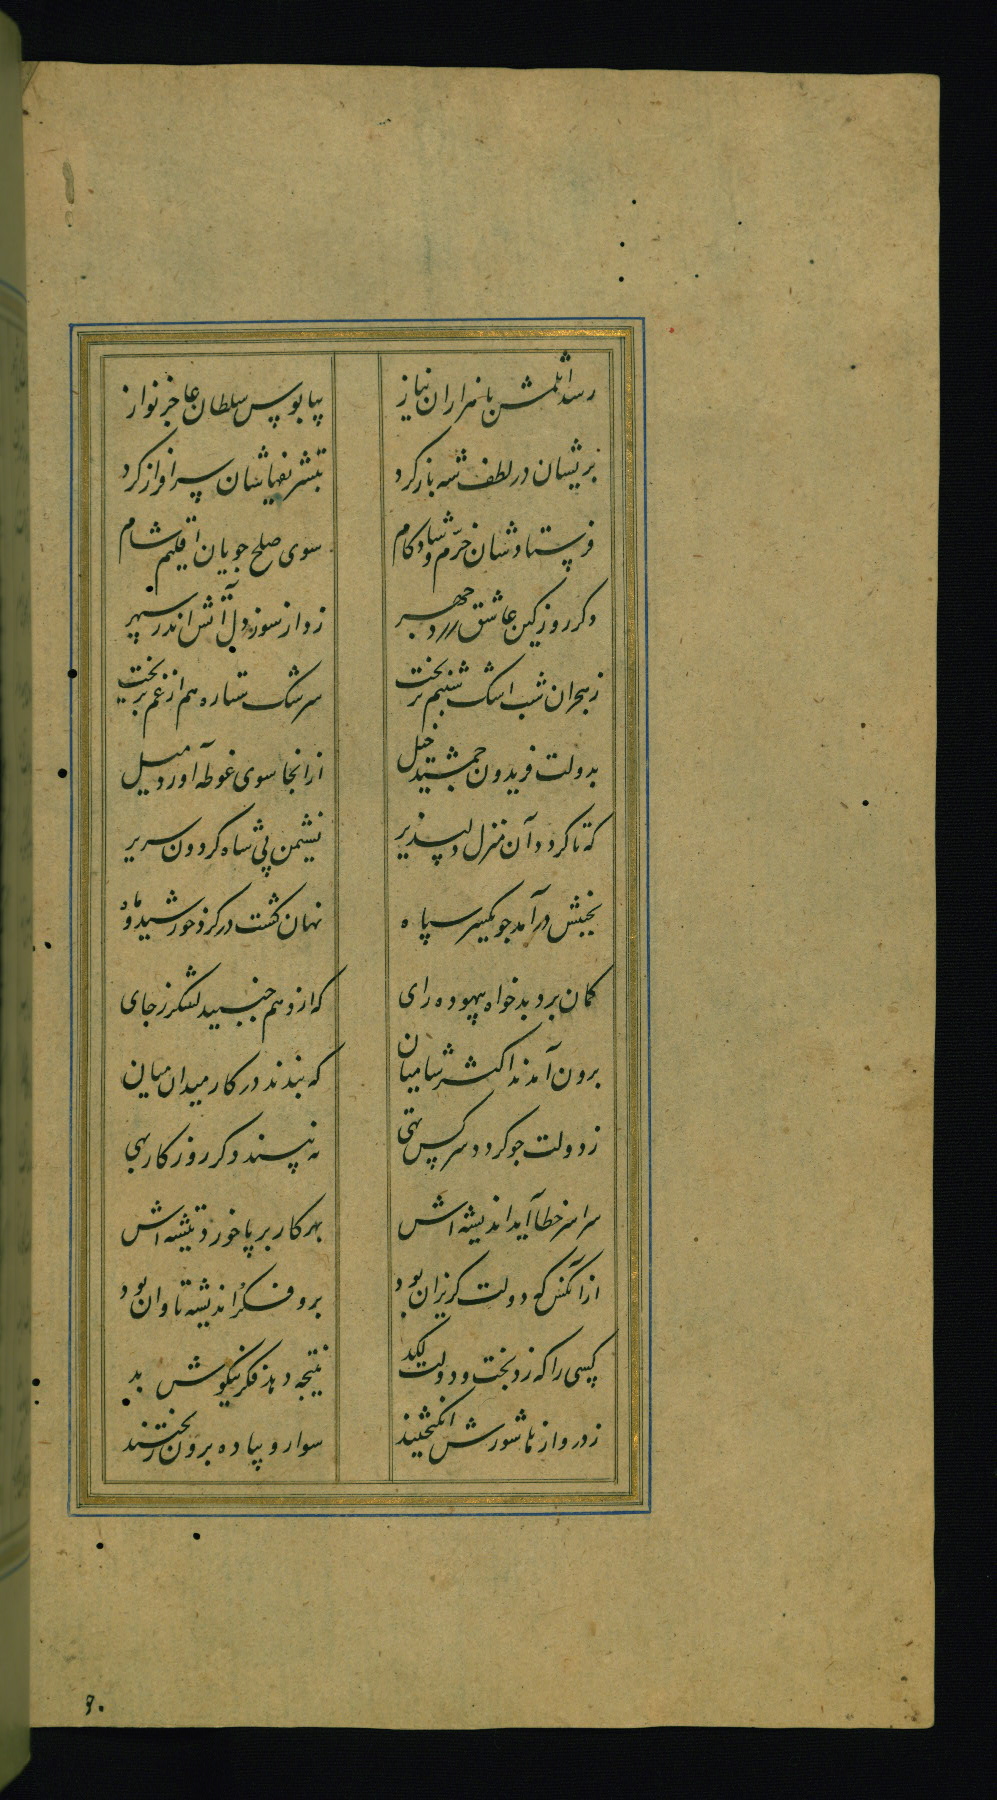 رسد اتلمش با هزاران نیاز بپابوس سلطان عاجز نواز
بریشان در لطف شه باز کرد بتشریفهاشان سرافراز کرد
فرستادشان خرم و شادکام سوی صلح جویان اقلیم شام
دکر روز کین عاشق زرد چهر زد از سوز دل آتش اندر سپهر
ز هجران شب اشک شبنم بریخت سرشک ستاره هم از غم بریخت
بدولت فریدون جمشید خیل از انجا سوی غوطه آورد میل
که تا کردد آن منزل دلپذیر نشیمن پی شاه کردون سریر
بجنبش درآمد جو یکسر سپاه نهان کشت در کرد خورشید و ماه
کمان برد بدخواه بیهوده رای که از وهم جنبید لشکر ز جای
برون آمدند اکثر شامیان که بندند در کار میدان میان
ز دولت جو کردد سر کس تهی نه بیند دکر روزکار بهی
سراسر خطا آید اندیشه‌اش بهر کار بر پا خورد تیشه‌اش
از آنکس که دولت کریزان بود برو فکر و اندیشه تاوان بود
کسی را که زد بخت و دولت لکد نتیجه دهد فکر نیکوش بد
ز دروازها شورش انکیختند سوار و پیاده برون ریختند
۹۰